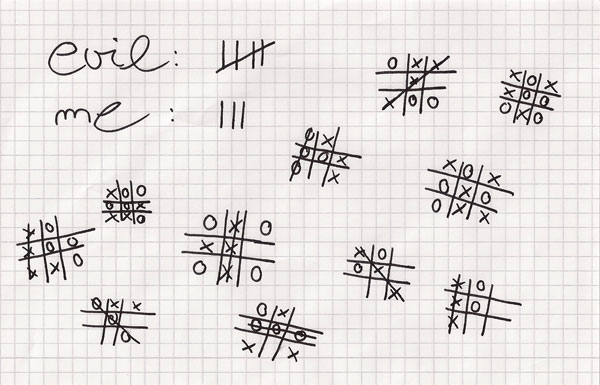 evil:
me :